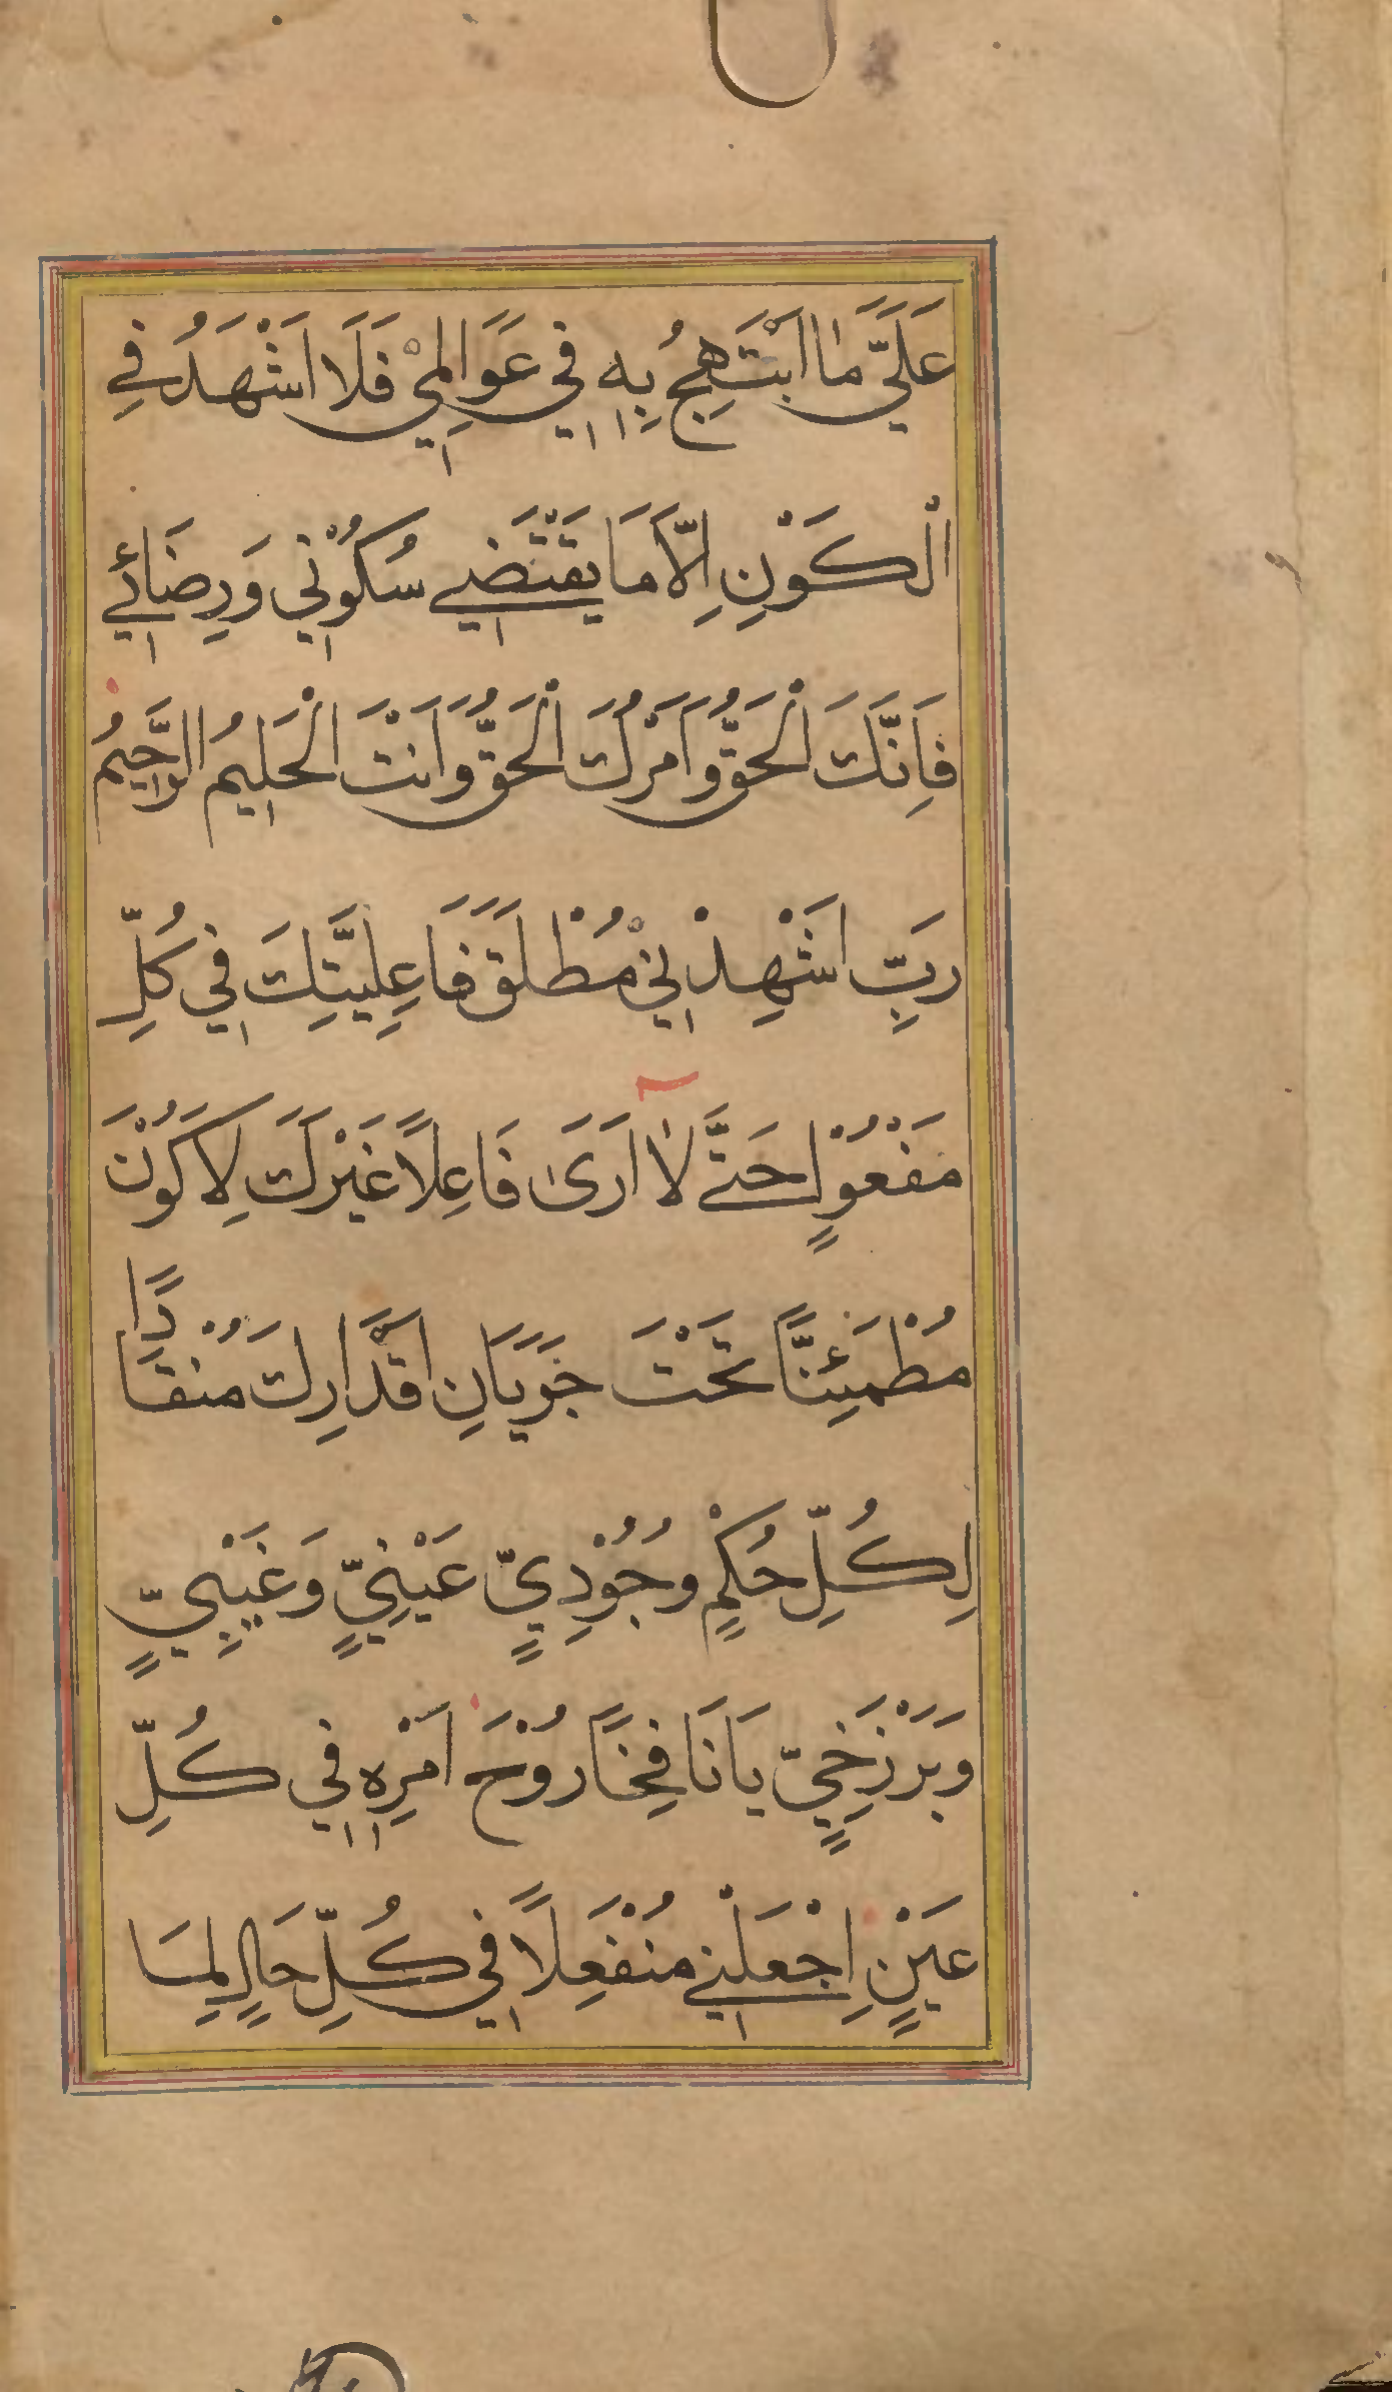 عَلَيَّ مَا اَبْتَهِجُ بِهِ فِي عَوَالِمِيْ فَلَا اَشْهَدُ فِي
الْكَوْنِ اِلَّا مَا يَقْتَضِي سُكُوْنِي وَرِضَائِي
فَاِنَّكَ الْحَقُّ وَاَمْرُكَ الْحَقُّ وَاَنْتَ الْحَلِيمُ الرَّحِيمُ
رَبِّ اَشْهِدْنِيْ مُطْلَقَ فَاعِلِيَّتِكَ فِي كُلِّ
مَفْعُوْلٍ حَتَّى لَا اَرَىٰ فَاعِلًا غَيْرَكَ لِاَكُوْنَ
مُطْمَئِنًّا تَحْتَ جَرَيَانِ اَقْدَارِكَ مُنْقَادًا
لِكُلِّ حُكْمٍ وُجُوْدِيٍّ عَيْنِيٍّ وَغَيْبِيٍّ
وَبَرْزَخِيٍّ يَا نَافِخًا رُوْحَ اَمْرِهِ فِي كُلِّ
عَيْنٍ اِجْعَلْنِي مُنْفَعِلًا فِي كُلِّ حَالٍ لِمَا